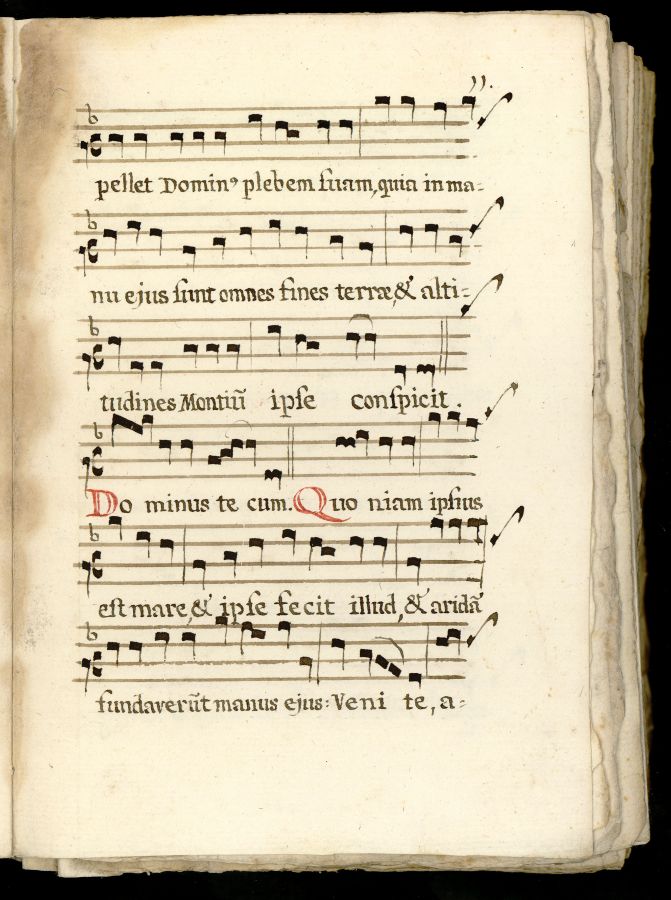 pellet Dominꝰ plebem suam, quia in ma=
nu ejus sunt omnes fines terræ, & alti=
tudines Montiū ipse conspicit.
Dominus tecum. Quoniam ipsius
est mare, & ipse fecit illud, & aridā
fundaverūt manus ejus: Venite, a=